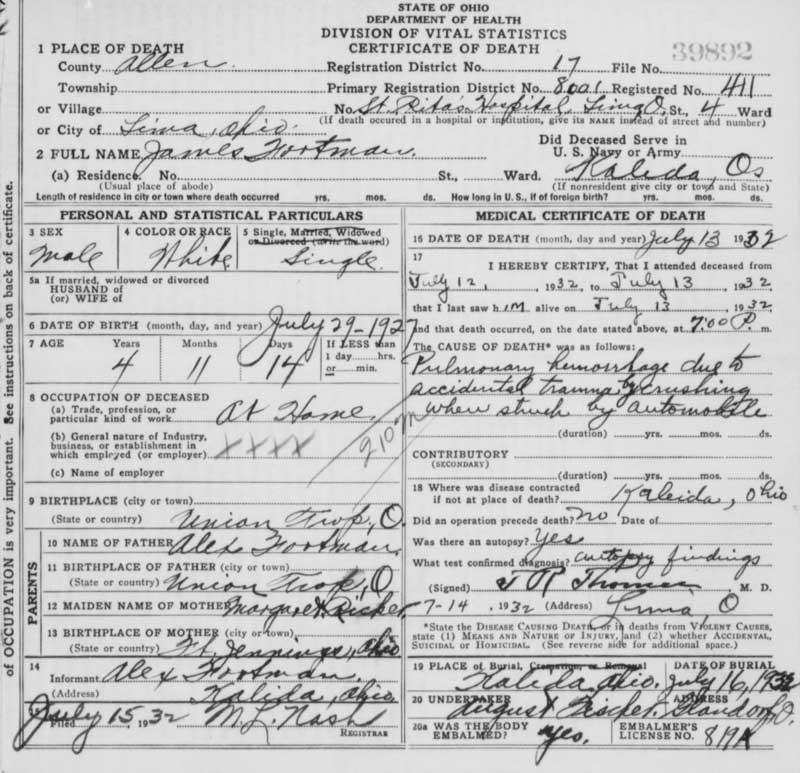 STATE OF OHIO
DEPARTMENT OF HEALTH
DIVISION OF VITAL STATISTICS
CERTIFICATE OF DEATH
39892
1 PLACE OF DEATH
County Allen Registration District No. 17 File No.
Township Primary Registration District No. 8001 Registered No. 411
or Village No. St. Ritas Hospital, Lima O. St., 4 Ward
(If death occured in a hospital or institution, give its NAME instead of street and number)
or City of Lima, Ohio.
Did Deceased Serve in
2 FULL NAME James Fortman. U. S. Navy or Army
(a) Residence. No. St., Ward. Kalida, Os
(Usual place of abode) (If nonresident give city or town and State)
Length of residence in city or town where death occurred yrs. mos. ds. How long in U. S., if of foreign birth? yrs. mos. ds.
PERSONAL AND STATISTICAL PARTICULARS
3 SEX 4 COLOR OR RACE 5 Single, Married, Widowed
or Divorced (write the word)
Male White Single.
5a If married, widowed or divorced
HUSBAND of
(or) WIFE of
6 DATE OF BIRTH (month, day, and year) July 29-1927
7 AGE Years Months Days If LESS than
1 day hrs.
4 11 14 or min.
8 OCCUPATION OF DECEASED
(a) Trade, profession, or
particular kind of work At Home.
(b) General nature of Industry,
business, or establishment in
which employed (or employer) XXXX
210M
(c) Name of employer
9 BIRTHPLACE (city or town)
(State or country) Union Twp, O.
PARENTS
10 NAME OF FATHER Alex Fortman.
11 BIRTHPLACE OF FATHER (city or town)
(State or country) Union Twp, O
12 MAIDEN NAME OF MOTHER Margaret
13 BIRTHPLACE OF MOTHER (city or town)
(State or country) Ft. Jennings, Ohio
14
Informant Alex Fortman.
(Address) Kalida, Ohio
15
Filed July 15, 1932 N. L. Nash
REGISTRAR
MEDICAL CERTIFICATE OF DEATH
16 DATE OF DEATH (month, day and year) July 13 1932
17
I HEREBY CERTIFY, That I attended deceased from
July 12, , 1932, to July 13 , 1932
that I last saw him alive on July 13 , 1932,
and that death occurred, on the date stated above, at 7:00 P. m.
The CAUSE OF DEATH* was as follows:
Pulmonary hemorrhage due to
accidental trauma by crushing
when struck by automobile
(duration) yrs. mos. ds.
CONTRIBUTORY
(SECONDARY)
(duration) yrs. mos. ds.
18 Where was disease contracted
if not at place of death? Kaleida, Ohio
Did an operation precede death? no Date of
Was there an autopsy? Yes
What test confirmed diagnosis? autopsy findings
(Signed) T R Thomas M. D.
7-14 , 1932 (Address) Lima, O
*State the DISEASE CAUSING DEATH, or in deaths from VIOLENT CAUSES,
state (1) MEANS AND NATURE OF INJURY, and (2) whether ACCIDENTAL,
SUICIDAL or HOMICIDAL. (See reverse side for additional space.)
19 PLACE OF Burial, Cremation, or Removal DATE OF BURIAL
Kalida Ohio. July 16, 1932
20 UNDERTAKER ADDRESS
August Fischer, Glandorf, O.
20a WAS THE BODY
EMBALMED? Yes. EMBALMER'S
LICENSE NO. 819A
of OCCUPATION is very important. See instructions on back of certificate.